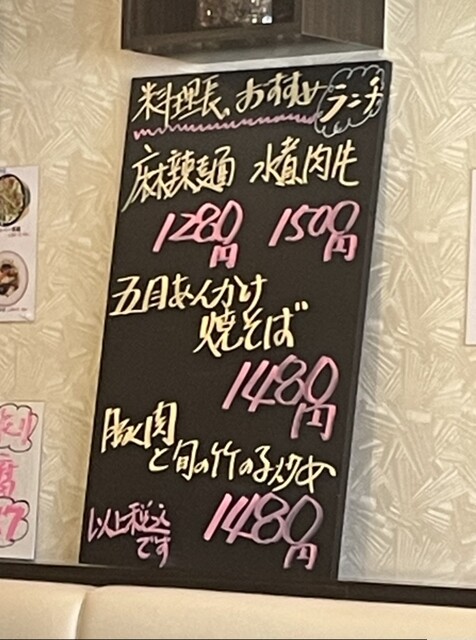 料理長、おすすめ ランチ
麻辣麺 水煮肉片
1280円 1500円
五目あんかけ
焼そば
1480円
豚肉
と旬の竹の子炒め
1480円
以上税込
です